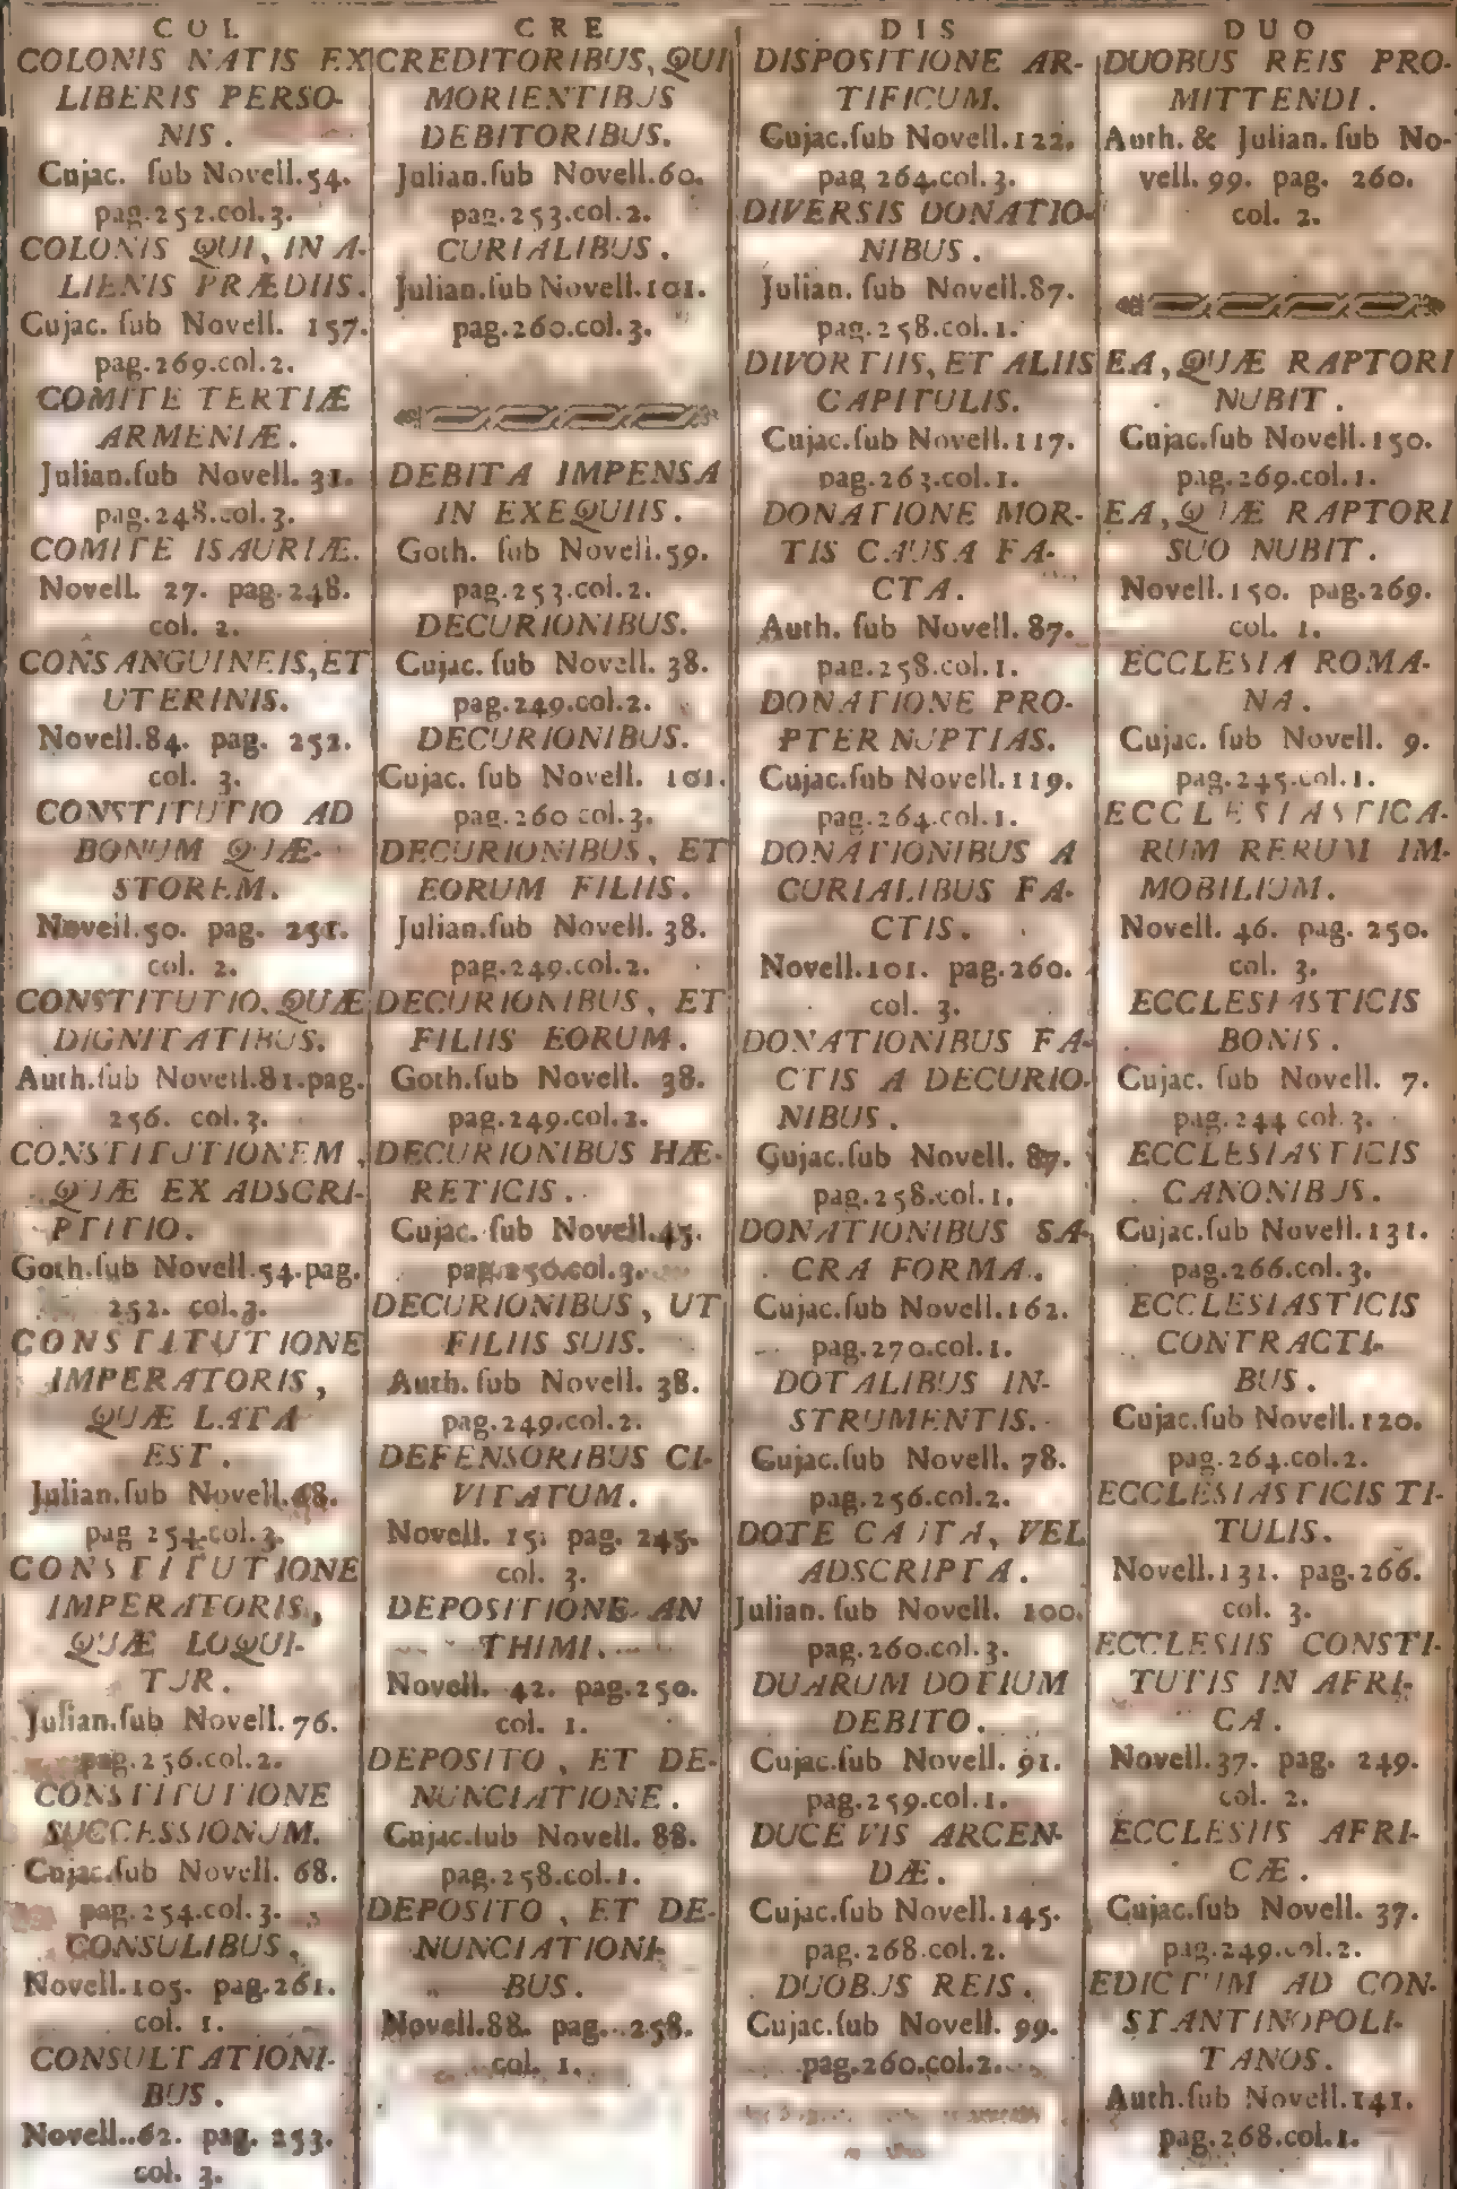 COL
COLONIS NATIS EX
LIBERIS PERSO-
NIS.
Cujac. ſub Novell. 54.
pag. 252. col. 3.
COLONIS QUI, IN A-
LIENIS PRÆDIIS.
Cujac. ſub Novell. 157.
pag. 269. col. 2.
COMITE TERTIÆ
ARMENIÆ.
Julian. ſub Novell. 31.
pag. 248. col. 3.
COMITE ISAURIÆ.
Novell. 27. pag. 248.
col. 2.
CONSANGUINEIS, ET
UTERINIS.
Novell. 84. pag. 252.
col. 3.
CONSTITUTIO AD
BONUM QUÆ-
STOREM.
Novell. 50. pag. 251.
col. 2.
CONSTITUTIO, QUÆ
DIGNITATIBUS.
Auth. ſub Novell. 81. pag.
256. col. 3.
CONSTITUTIONEM,
QUÆ EX ADSCRI-
PTITIO.
Goth. ſub Novell. 54. pag.
252. col. 3.
CONSTITUTIONE
IMPERATORIS,
QUÆ LATA
EST.
Julian. ſub Novell. 68.
pag 254. col. 3.
CONSTITUTIONE
IMPERATORIS,
QUÆ LOQUI-
TUR.
Julian. ſub Novell. 76.
pag. 256. col. 2.
CONSTITUTIONE
SUCCESSIONUM.
Cujac. ſub Novell. 68.
pag. 254. col. 3.
CONSULIBUS.
Novell. 105. pag. 261.
col. 1.
CONSULTATIONI-
BUS.
Novell. 62. pag. 253.
col. 3.
CRE
CREDITORIBUS, QUI
MORIENTIBUS
DEBITORIBUS.
Julian. ſub Novell. 60.
pag. 253. col. 2.
CURIALIBUS.
Julian. ſub Novell. 101.
pag. 260. col. 3.
DEBITA IMPENSA
IN EXEQUIIS.
Goth. ſub Novell. 59.
pag. 253. col. 2.
DECURIONIBUS.
Cujac. ſub Novell. 38.
pag. 249. col. 2.
DECURIONIBUS.
Cujac. ſub Novell. 101.
pag. 260 col. 3.
DECURIONIBUS, ET
EORUM FILIIS.
Julian. ſub Novell. 38.
pag. 249. col. 2.
DECURIONIBUS, ET
FILIIS EORUM.
Goth. ſub Novell. 38.
pag. 249. col. 2.
DECURIONIBUS HÆ-
RETICIS.
Cujac. ſub Novell. 45.
pag. 250. col. 3.
DECURIONIBUS, UT
FILIIS SUIS.
Auth. ſub Novell. 38.
pag. 249. col. 2.
DEFENSORIBUS CI-
VITATUM.
Novell. 15. pag. 245.
col. 3.
DEPOSITIONE AN
THIMI.
Novell. 42. pag. 250.
col. 1.
DEPOSITO, ET DE-
NUNCIATIONE.
Cujac. ſub Novell. 88.
pag. 258. col. 1.
DEPOSITO, ET DE-
NUNCIATIONI-
BUS.
Novell. 88. pag. 258.
col. 1.
DIS
DISPOSITIONE AR-
TIFICUM.
Cujac. ſub Novell. 122.
pag 264. col. 3.
DIVERSIS DONATIO-
NIBUS.
Julian. ſub Novell. 87.
pag. 258. col. 1.
DIVORTIIS, ET ALIIS
CAPITULIS.
Cujac. ſub Novell. 117.
pag. 263. col. 1.
DONATIONE MOR-
TIS CAUSA FA-
CTA.
Auth. ſub Novell. 87.
pag. 258. col. 1.
DONATIONE PRO-
PTER NUPTIAS.
Cujac. ſub Novell. 119.
pag. 264. col. 1.
DONATIONIBUS A
CURIALIBUS FA-
CTIS.
Novell. 101. pag. 260.
col. 3.
DONATIONIBUS FA-
CTIS A DECURIO-
NIBUS.
Cujac. ſub Novell. 87.
pag. 258. col. 1.
DONATIONIBUS SA-
CRA FORMA.
Cujac. ſub Novell. 162.
pag. 270. col. 1.
DOTALIBUS IN-
STRUMENTIS.
Cujac. ſub Novell. 78.
pag. 256. col. 2.
DOTE CAUTA, VEL
ADSCRIPTA.
Julian. ſub Novell. 100.
pag. 260. col. 3.
DUARUM DOTIUM
DEBITO.
Cujac. ſub Novell. 91.
pag. 259. col. 1.
DUCE VIS ARCEN-
DÆ.
Cujac. ſub Novell. 145.
pag. 268. col. 2.
DUOBUS REIS.
Cujac. ſub Novell. 99.
pag. 260. col. 2.
DUO
DUOBUS REIS PRO-
MITTENDI.
Auth. & Julian. ſub No-
vell. 99. pag. 260.
col. 2.
EA, QUÆ RAPTORI
NUBIT.
Cujac. ſub Novell. 150.
pag. 269. col. 1.
EA, QUÆ RAPTORI
SUO NUBIT.
Novell. 150. pag. 269.
col. 1.
ECCLESIA ROMA-
NA.
Cujac. ſub Novell. 9.
pag. 245. col. 1.
ECCLESIASTICA-
RUM RERUM IM-
MOBILIUM.
Novell. 46. pag. 250.
col. 3.
ECCLESIASTICIS
BONIS.
Cujac. ſub Novell. 7.
pag. 244 col. 3.
ECCLESIASTICIS
CANONIBUS.
Cujac. ſub Novell. 131.
pag. 266. col. 3.
ECCLESIASTICIS
CONTRACTI-
BUS.
Cujac. ſub Novell. 120.
pag. 264. col. 2.
ECCLESIASTICIS TI-
TULIS.
Novell. 131. pag. 266.
col. 3.
ECCLESIIS CONSTI-
TUTIS IN AFRI-
CA.
Novell. 37. pag. 249.
col. 2.
ECCLESIIS AFRI-
CÆ.
Cujac. ſub Novell. 37.
pag. 249. col. 2.
EDICTUM AD CON-
STANTINOPOLI-
TANOS.
Auth. ſub Novell. 141.
pag. 268. col. 1.